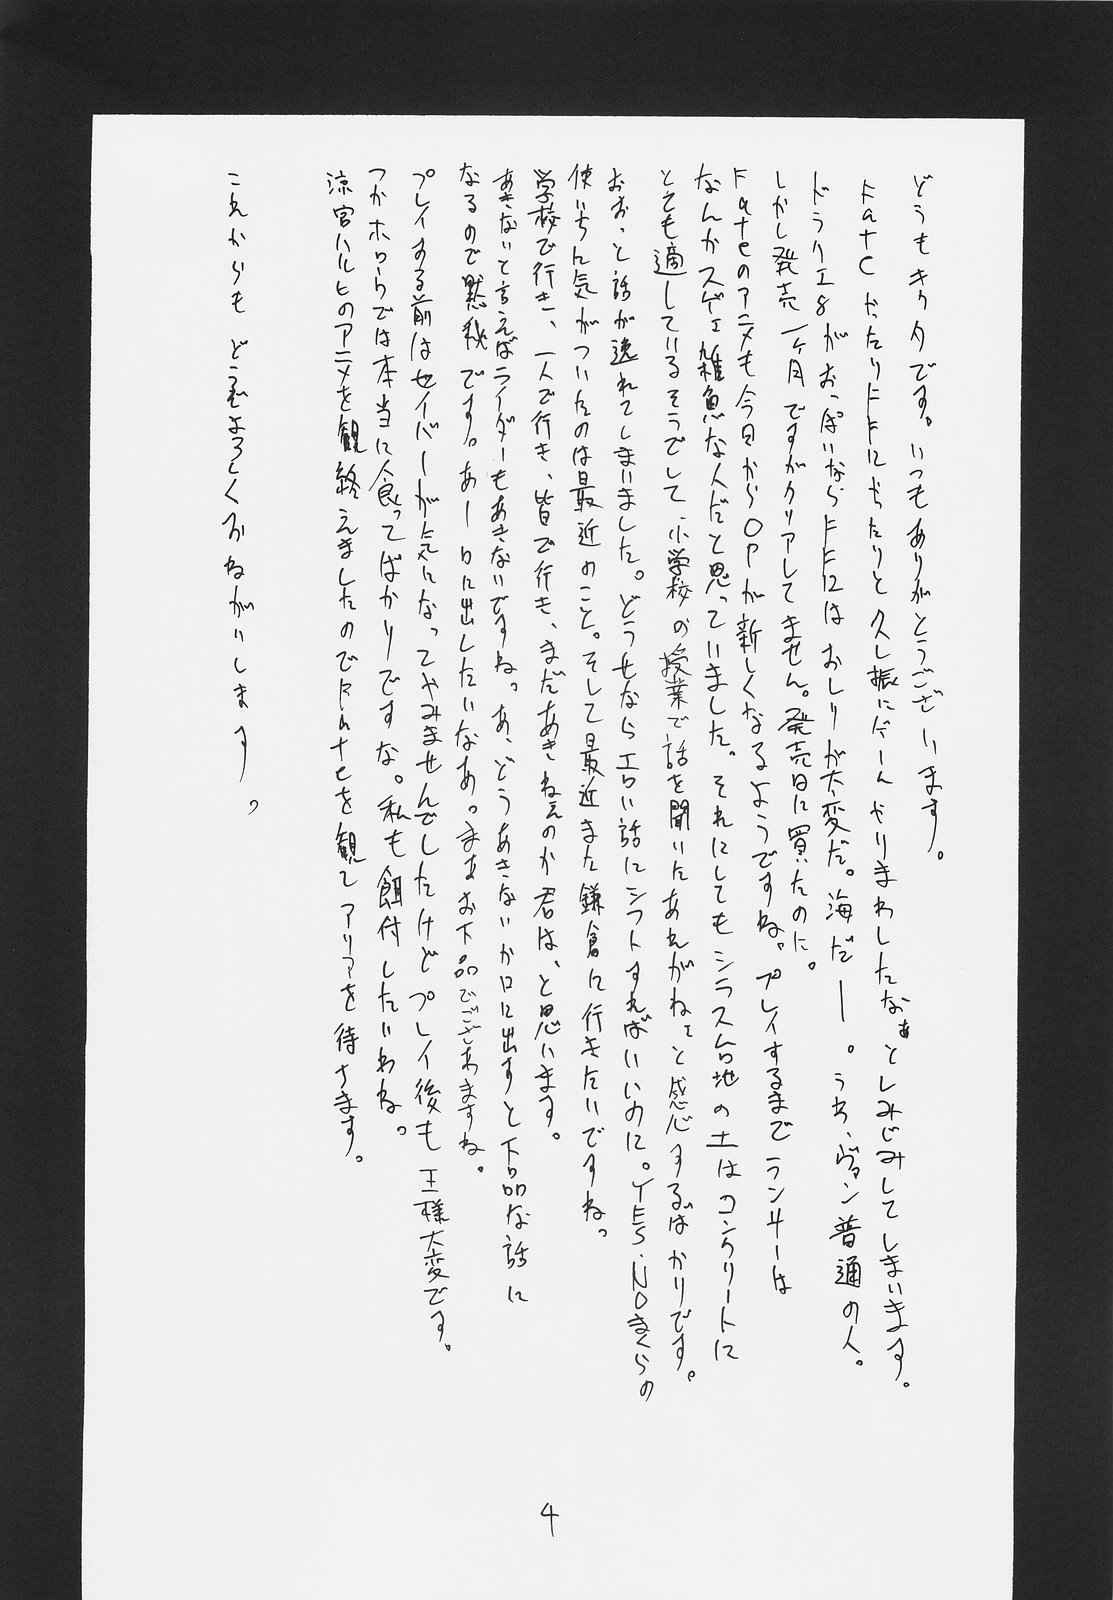 どうもキクタです。いつもありがとうございます。
Fateだったり FF12だったりと久し振にゲームやりまわしたなぁとしみじみしてしまいます。
ドラクエ8がおっぱいならFF12はおしりが大変だ。海だー。うわ、ヴァン普通の人。
しかし発売一ヶ月ですがクリアしてません。発売日に買いたのに。
Fateのアニメも今日からOPが新しくなるようですね。プレイするまでランサーは
なんかスゲェ雑魚な人だと思っていました。それにしてもシラス台地の土はコンクリートに
とても適しているそうでして、小学校の授業で話を聞いたあれがねぇと感心するばかりです。
おおっと話が逸れてしまいました。どうせならエロい話にシフトすればいいのに。YES・NOまくらの
使いみちに気がついたのは最近のこと。そして最近また鎌倉に行きたいですね。
学校で行き、一人で行き、皆で行き、まだあきねぇのか君は、と思います。
あきないと言えばライダーもあきないですね。あ、どうあきないか口に出すと下品な話に
なるので黙秘です。あー口に出したいなあ。まあお下品でございますね。
プレイする前はセイバーが気になってやみませんでしたけどプレイ後も王様大変です。
つかホロウでは本当に食ってばかりですな。私も餌付したいわね。
涼宮ハルヒのアニメを観終えましたのでFateを観てアリアを待ちます。
これからもどうぞよろしくおねがいします。
4